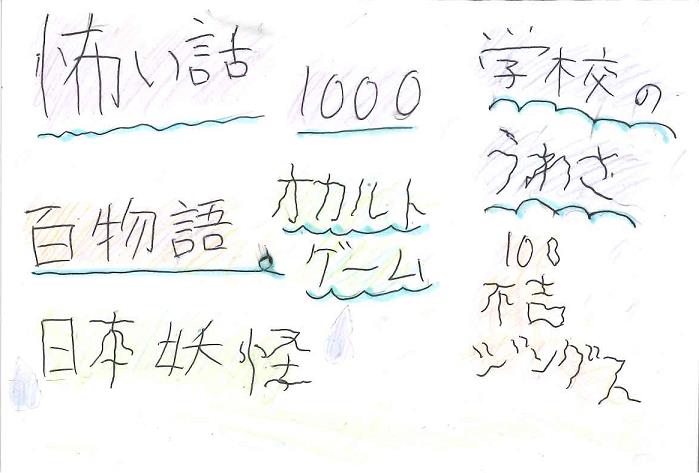 怖い話
1000
学校の
うわさ
百物語。
オカルト
ゲーム
日本妖怪
108
不吉
ジンクス